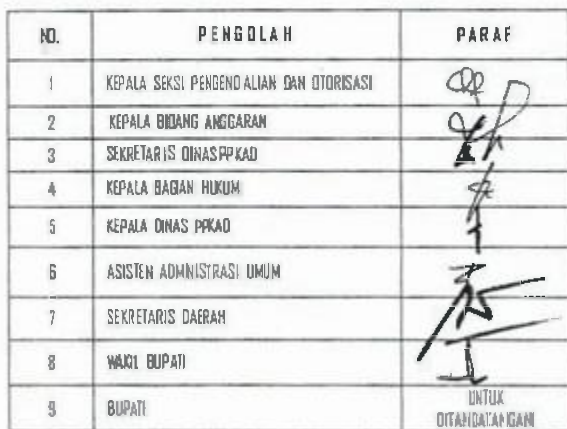 NO. PENGOLAH PARAF
1 KEPALA SEKSI PENGENDALIAN DAN OTORISASI
2 KEPALA BIDANG ANGGARAN
3 SEKRETARIS DINAS PPKAD
4 KEPALA BAGIAN HUKUM
5 KEPALA DINAS PPKAD
6 ASISTEN ADMNISTRASI UMUM
7 SEKRETARIS DAERAH
8 WAKIL BUPATI
9 BUPATI UNTUK
DITANDATANGANI